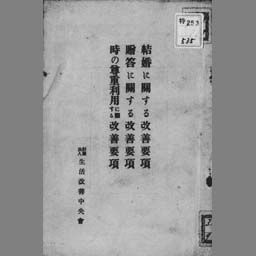 結婚に關する改善要項
贈答に關する改善要項
時の尊重利用に關する改善要項
財團法人生活改善中央會
特253
535